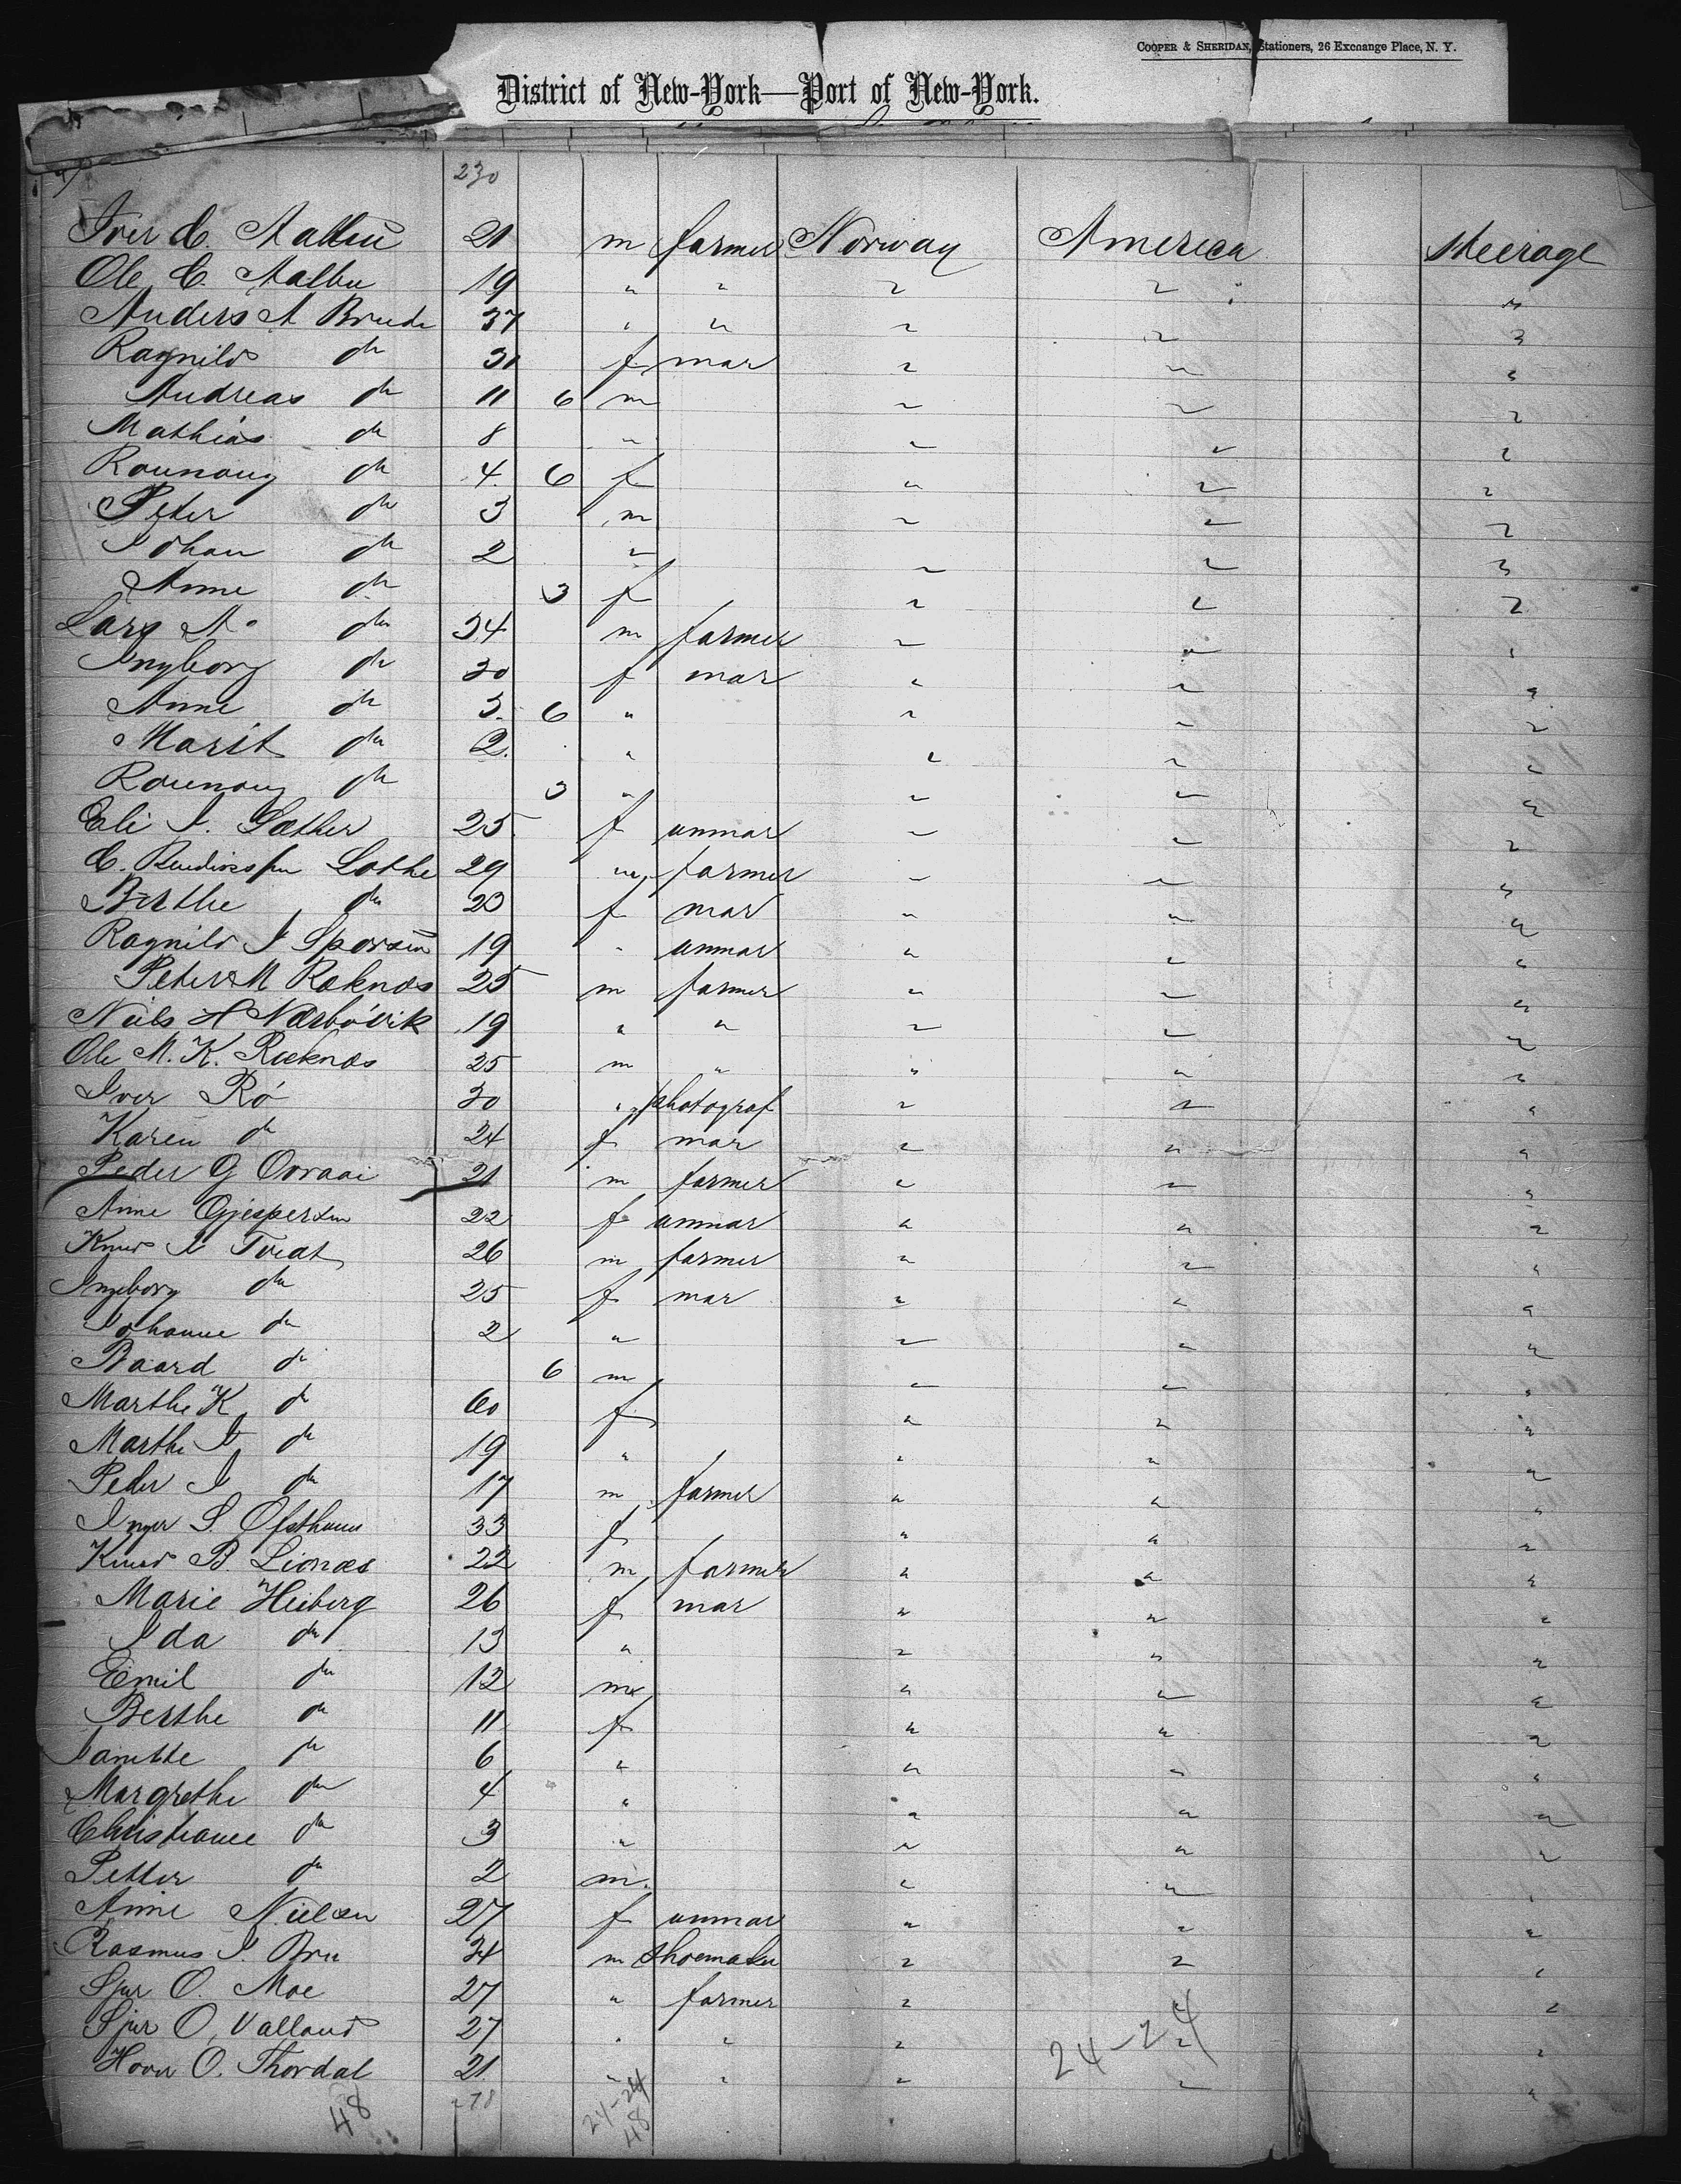 COOPER & SHERIDAN, Stationers, 26 Exchange Place, N. Y.
District of New-York—Port of New-York.
230
Iver C. Aalbu 21 m farmer Norway America Steerage
Ole C. Aalbu 19 " " " " "
Anders A Brude 37 " " " " "
Ragnild do 30 f mar " " "
Andreas do 11 6 m " " "
Mathias do 8 " " " "
Rounoug do 4 6 f " " "
Peter do 3 m " " "
Johan do 2 " " " "
Anne do 3 f " " "
Lars A. do 34 m farmer " " "
Ingborg do 30 f mar " " "
Anne do 3. 6 " " " "
Marit do 2. " " " "
Rounoug do 3 " " " "
Eli I. Sæther 25 f unmar " " "
C. Lothe 29 m farmer " " "
Birthe do 23 f mar " " "
Ragnild I 19 " unmar " " "
Peter M Roknæs 25 m farmer " " "
Niels H Nærbövik 19 " " " " "
Ole M. K. Roeknæs 25 m " " " "
Iver Rö 30 " photograf " " "
Karen do 24 f mar " " "
Peder G Ovraai 21 m farmer " " "
Anne Gjespersen 22 f unmar " " "
Knud I Tveat 26 m farmer " " "
Ingeborg do 25 f mar " " "
Johanne do 2 " " " "
Baard do 6 m " " "
Marthe K do 60 f " " "
Marthe I do 19 " " " "
Peder I do 17 m farmer " " "
Inger S. Ofsthuus 33 f " " "
Knud B. Lionæs 22 m farmer " " "
Marie Heiberg 26 f mar " " "
Ida do 13 " " " "
Emil do 12 m " " "
Berthe do 11 f " " "
Janitte do 6 " " " "
Margrethe do 4 " " " "
Christiane do 3 " " " "
Petter do 2 m. " " "
Anne Nielsen 27 f unmar " " "
Rasmus I. Bru 34 m Shoemaker " " "
Sjur O. Moe 27 " farmer " " "
Sjur O. Valland 27 " " " " "
O. Thordal 21 " " " " "
24-24
48 278 24-24
48